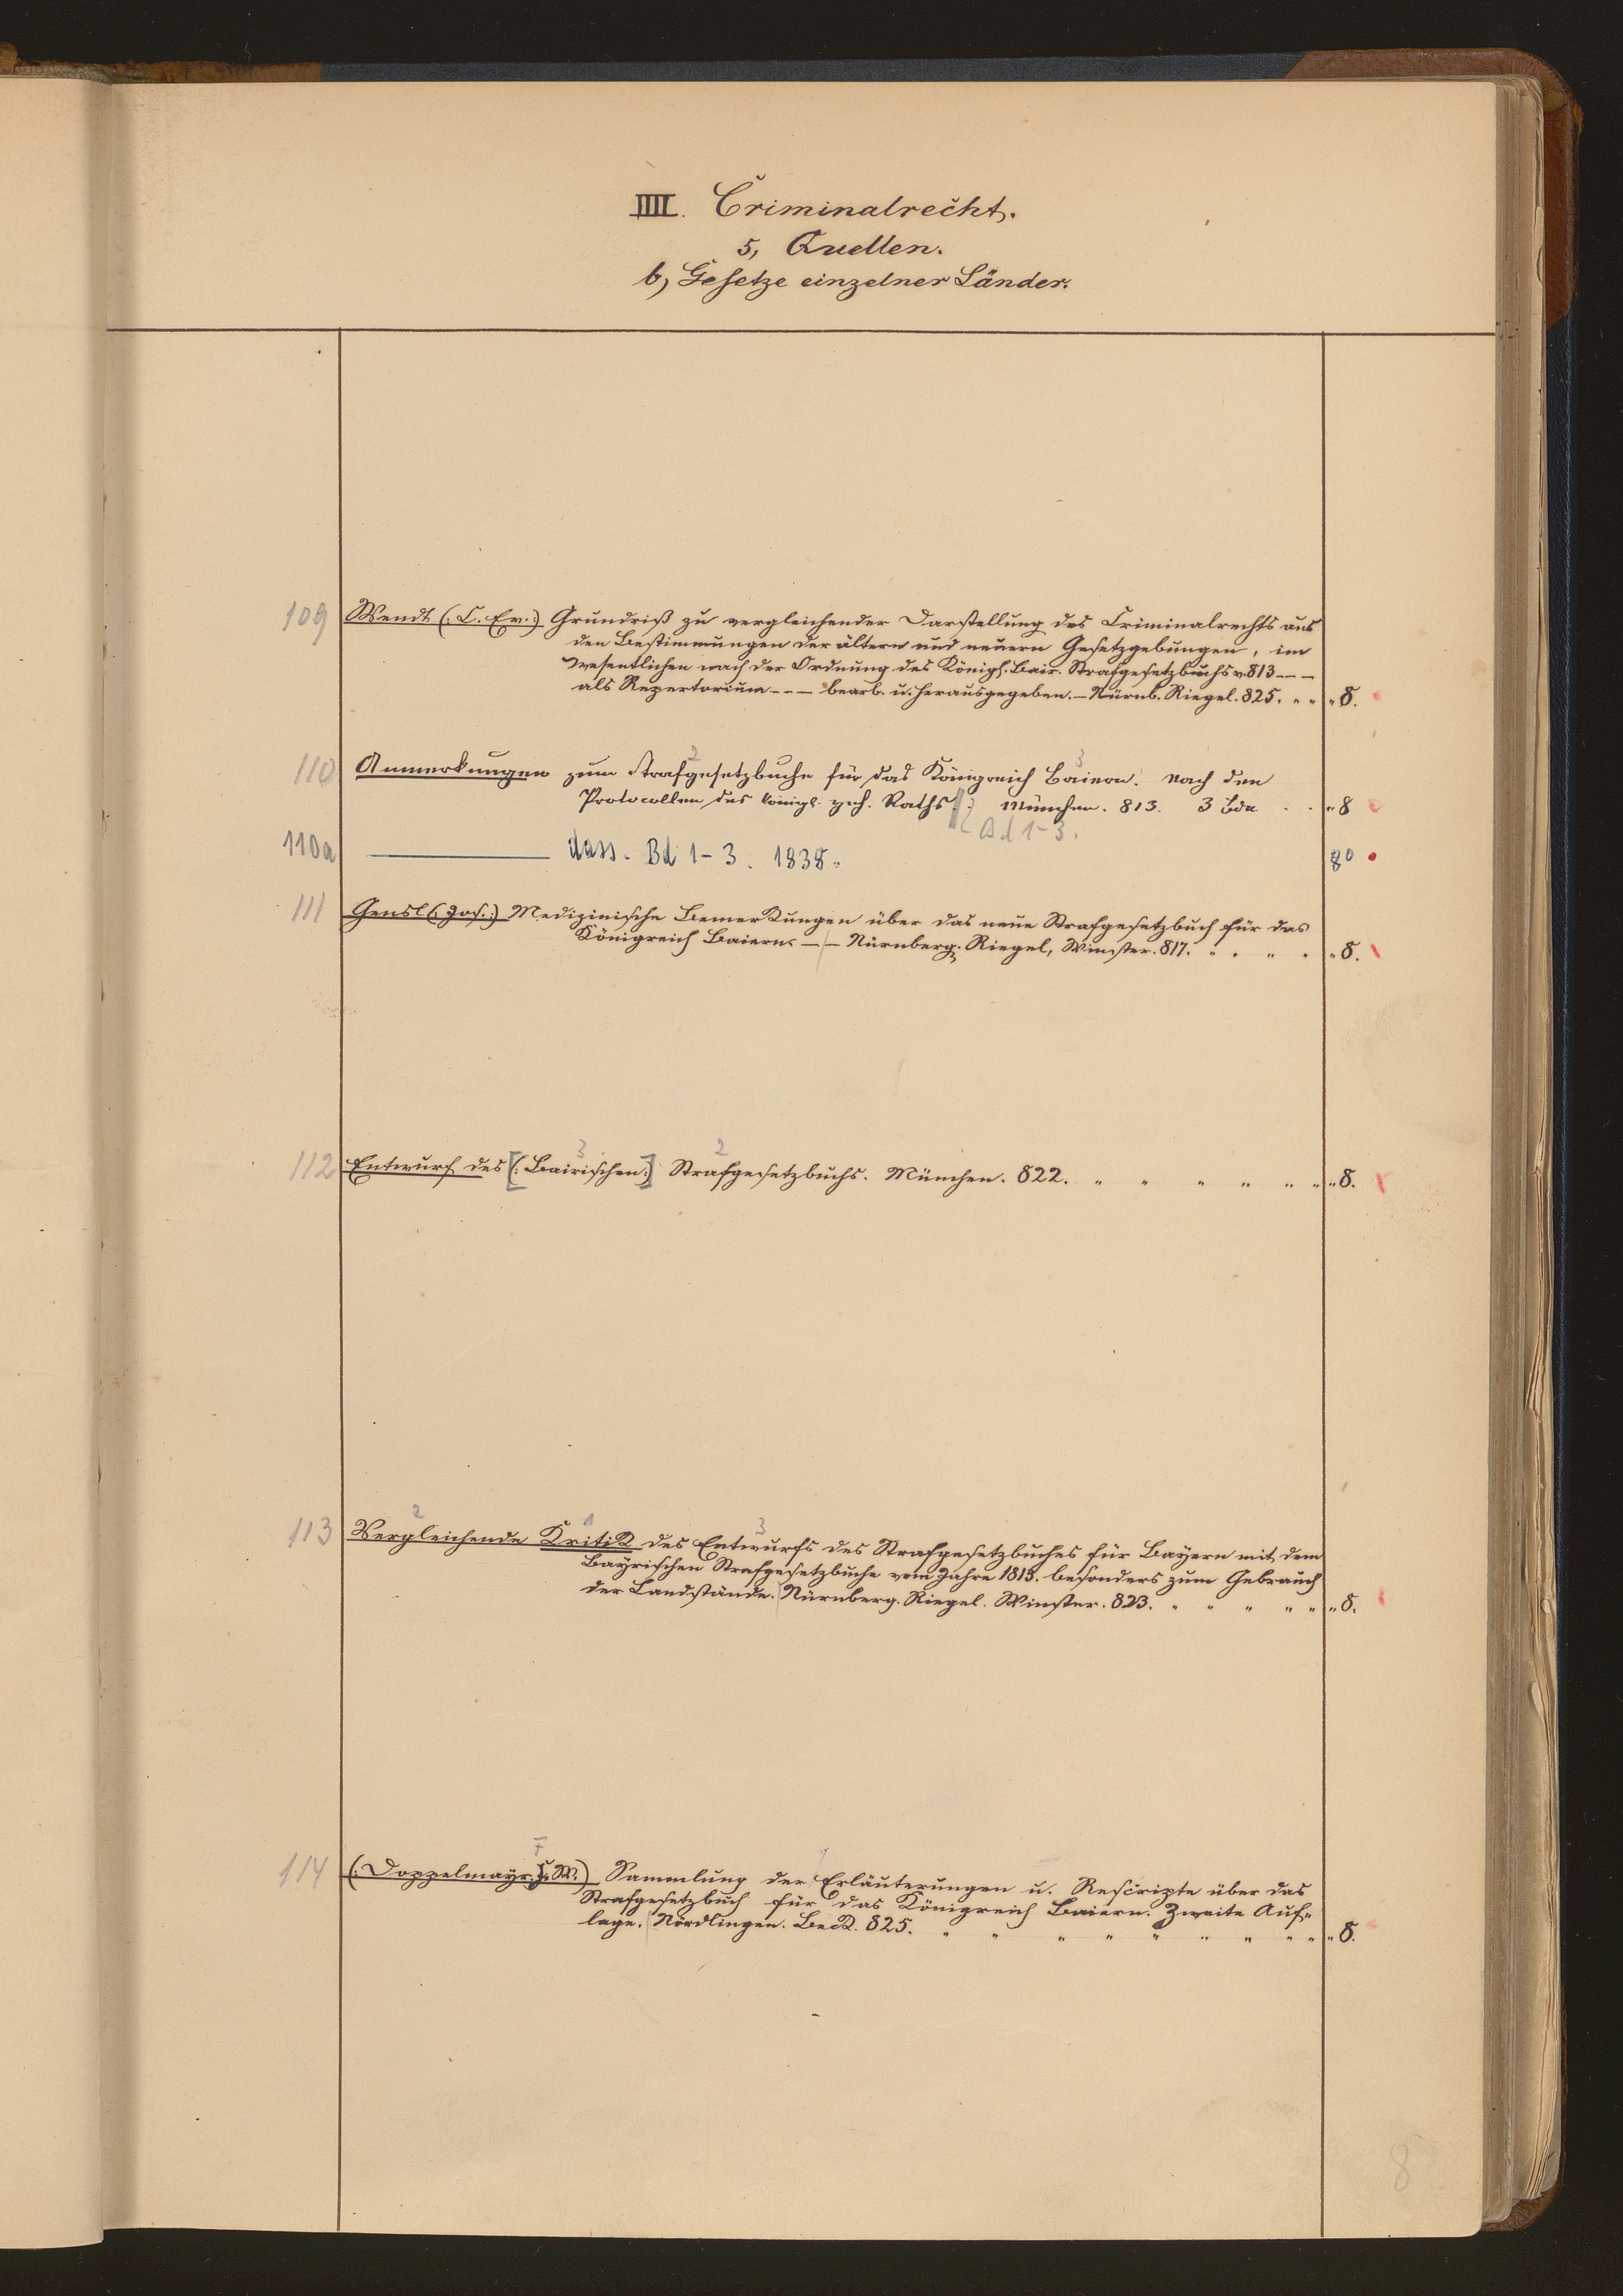 IIII. Criminalrecht.
5, Quellen.
b, Gesetze einzelner Länder.
109 Wendt (: C. Ev. :) Grundriß zu vergleichender Darstellung des Criminalrechts aus
den Bestimmungen der ältern und neuern Gesetzgebungen, im
Wesentlichen nach der Ordnung des Königl. Bair. Strafgesetzbuchs v. 813 - - -
als Repertorium - - - bearb. u. herausgegeben. - Nürnb. Riegel. 825. " " " 8.
2 3
110 Anmerkungen zum Strafgesetzbuche für das Königreich Baiern. Nach den
Protocollen des königl. geh. Raths. München. 813. 3 Bde . . " 8
Bd 1-3.
110a ——— dass. Bd 1-3. 1838. 8°
111 Gensl (: Jos. :) Medizinische Bemerkungen über das neue Strafgesetzbuch für das
Königreich Baiern. - - Nürnberg. Riegel, Winster. 817. " " " " " 8.
3 2
112 Entwurf des [(: Bairischen :)] Strafgesetzbuchs. München. 822. " " " " " " " 8.
2 1 3
113 Vergleichende Kritik des Entwurfs des Strafgesetzbuches für Bayern mit dem
Bayrischen Strafgesetzbuche vom Jahre 1813. besonders zum Gebrauch
der Landstände. Nürnberg. Riegel. Winster. 823. " " " " " " 8.
F
114 (: Doppelmayr. F. W. :) Sammlung der Erläuterungen u. Rescripte über das
Strafgesetzbuch für das Königreich Baiern. Zweite Auf-
lage. Nördlingen. Beck. 825. " " " " " " " " " " 8.
8